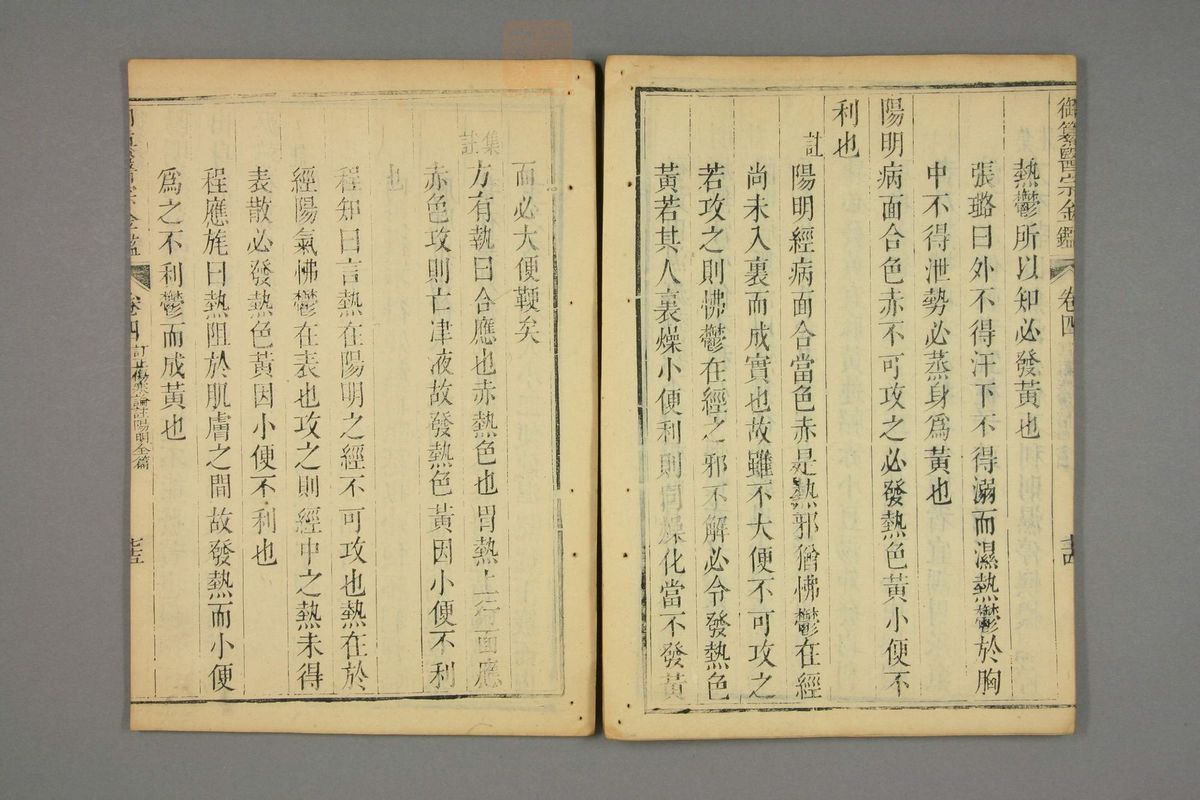 御纂醫宗金鑑 卷四
熱鬱所以知必發黃也
張璐曰外不得汗下不得溺而濕熱鬱於胸
中不得泄勢必蒸身爲黃也
陽明病面合色赤不可攻之必發熱色黃小便不
利也
註
陽明經病面合當色赤是熱邪猶怫鬱在經
尚未入裏而成實也故雖不大便不可攻之
若攻之則怫鬱在經之邪不解必令發熱色
黃若其人裏燥小便利則同燥化當不發黃
而必大便鞕矣
集註
方有執曰合應也赤熱色也胃熱上行面應
赤色攻則亡津液故發熱色黃因小便不利
也
程知曰言熱在陽明之經不可攻也熱在於
經陽氣怫鬱在表也攻之則經中之熱未得
表散必發熱色黃因小便不利也
程應旄曰熱阻於肌膚之間故發熱而小便
爲之不利鬱而成黃也
宗金鑑 卷四 訂正傷寒論註陽明全篇 七五